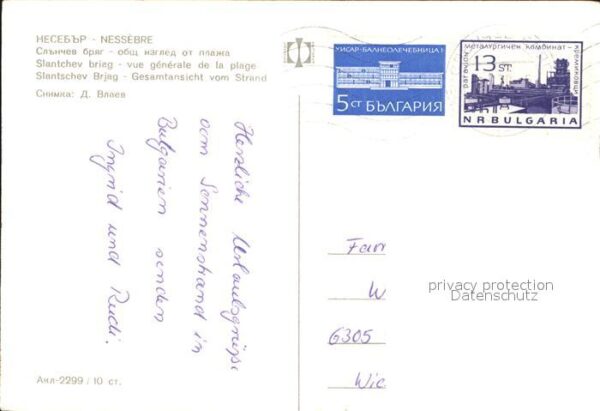 НЕСЕБЪР - NESSEBRE
Слънчев бряг - общ изглед от плажа
Slantchev brieg - vue générale de la plage
Slantschev Brjag - Gesamtansicht vom Strand
Снимка: Д. Влаев
Herzliche Urlaubsgrüße
vom Sonnenstrand in
Bulgarien senden
Ingrid und Rudi.
Акл-2299 / 10 ст.
ХИСАР-БАЛНЕОЛЕЧЕБНИЦА I
5 СТ БЪЛГАРИЯ
par avion металургичен комбинат - кремиковци
13 ST.
NR BULGARIA
Fam
W
6305
Wie
privacy protection
Datenschutz